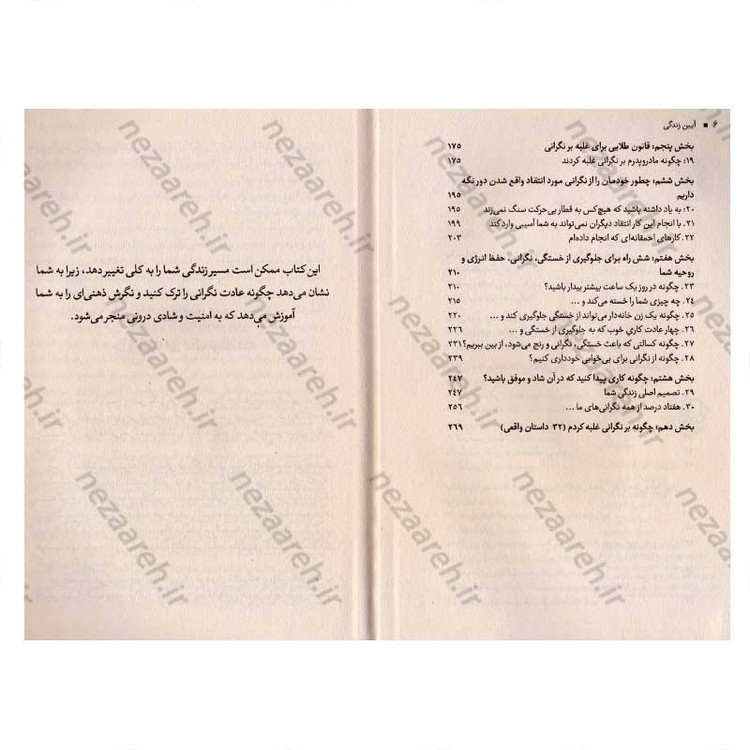 ۶ ■ آیین زندگی
بخش پنجم: قانون طلایی برای غلبه بر نگرانی ۱۷۵
۱۹: چگونه مادروپدرم بر نگرانی غلبه کردند ۱۷۵
بخش ششم: چطور خودمان را از نگرانی مورد انتقاد واقع شدن دور نگه
داریم ۱۹۵
۲۰: به یاد داشته باشید که هیچ‌کس به قطار بی‌حرکت سنگ نمی‌زند ۱۹۵
۲۱. با انجام این کار انتقاد دیگران نمی‌تواند به شما آسیبی وارد کند ۱۹۹
۲۲. کارهای احمقانه‌ای که انجام داده‌ام ۲۰۳
بخش هفتم: شش راه برای جلوگیری از خستگی، نگرانی، حفظ انرژی و
روحیه شما ۲۱۰
۲۳. چگونه در روز یک ساعت بیشتر بیدار باشید؟ ۲۱۰
۲۴. چه چیزی شما را خسته می‌کند و ... ۲۱۵
۲۵. چگونه یک زن خانه‌دار می‌تواند از خستگی جلوگیری کند و ... ۲۲۰
۲۶. چهار عادت کاریِ خوب که به جلوگیری از خستگی و ... ۲۲۶
۲۷. چگونه کسالتی که باعث خستگی، نگرانی و رنج می‌شود، از بین ببریم؟ ۲۳۱
۲۸. چگونه از نگرانی برای بی‌خوابی خودداری کنیم؟ ۲۳۹
بخش هشتم: چگونه کاری پیدا کنید که در آن شاد و موفق باشید؟ ۲۴۷
۲۹. تصمیم اصلی زندگی شما ۲۴۷
۳۰. هفتاد درصد از همه نگرانی‌های ما ... ۲۵۶
بخش دهم: چگونه بر نگرانی غلبه کردم (۳۲ داستان واقعی) ۲۶۹
این کتاب ممکن است مسیر زندگی شما را به کلی تغییر دهد، زیرا به شما
نشان می‌دهد چگونه عادت نگرانی را ترک کنید و نگرش ذهنی‌ای را به شما
آموزش می‌دهد که به امنیت و شادی درونی منجر می‌شود.
nezaareh.ir
nezaareh.ir
nezaareh.ir
nezaareh.ir
nezaareh.ir
nezaareh.ir
nezaareh.ir
nezaareh.ir
nezaareh.ir